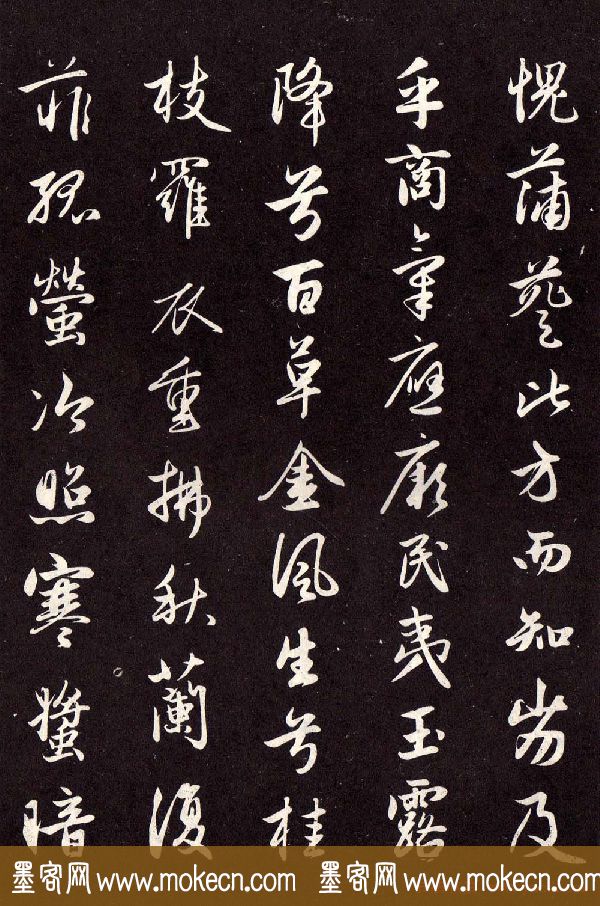 愧蒲葵比方而知及
乎商氣應厥民夷玉露
降兮百草金風生兮桂
枝羅衣重拂秋蘭復
菲孤螢冷照寒螿暗
墨客网 www.mokecn.com 墨客网 www.mokecn.com